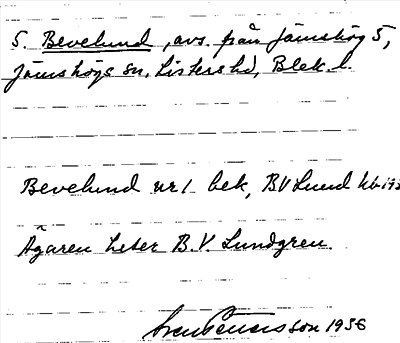 5. Bevelund, avs. från Jämshög 5,
Jämshögs sn, Listers hd, Blek. l.
Bevelund nr 1 bek, B V Lund kb 193
Ägaren heter B. V. Lundgren.
1936